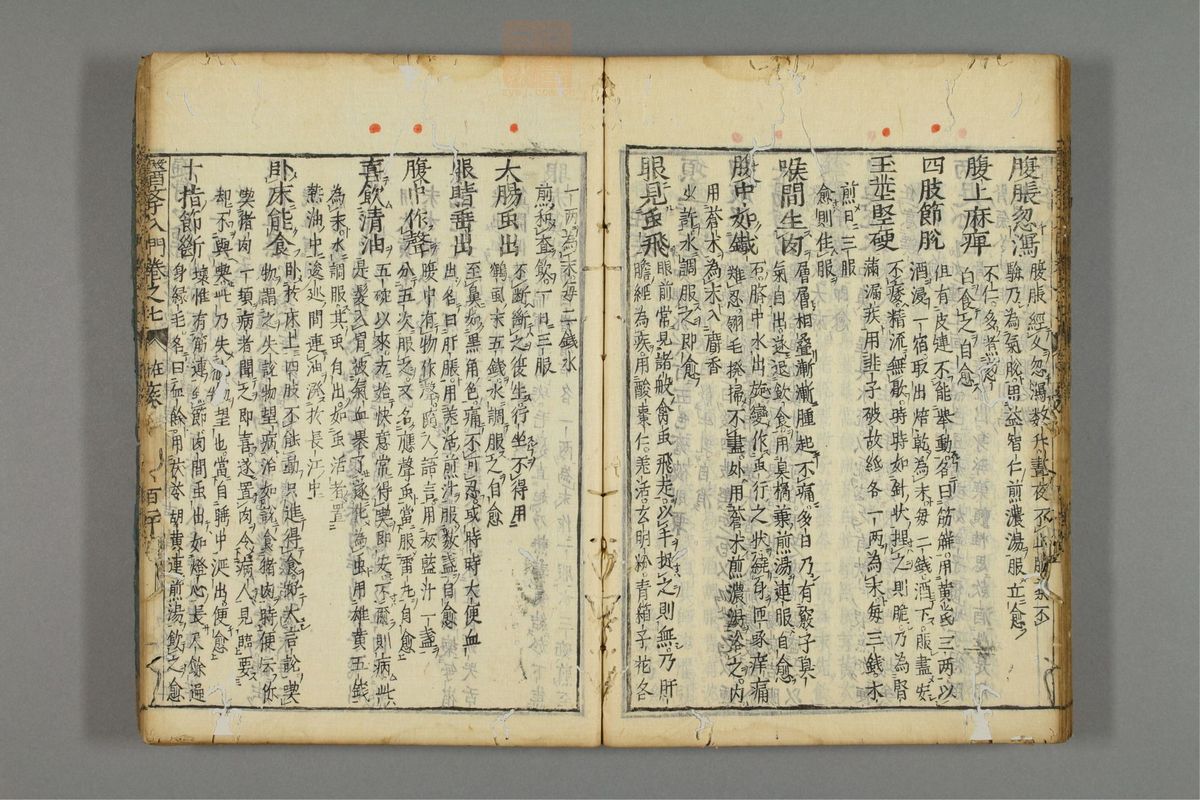 腹脹忽瀉 腹脹經久忽瀉數升晝夜不止服藥不
驗乃為氣脫用益智仁煎濃湯服立愈
腹上麻痺 不仁多煮葱
白食之自愈
四肢節脫 但有皮連不能舉動名曰筋解用黃芦三兩以
酒浸一宿取出焙乾為末每二錢酒下服盡安
玉莖堅硬 不痿精流無歇時時如針狀捏之則脆乃為腎
滿漏疾用韭子破故紙各一兩為末每三錢水
煎日三服
愈則住服
喉間生肉 層層相疊漸漸腫起不痛多日乃有竅子臭
氣自出遂退飲食用臭橘葉煎湯連服自愈
腹中如鐵 石臍中水出旋變作虫行之狀繞身匝啄痒痛
難忍翎毛撥掃不盡外用蒼朮煎濃湯浴之內
用蒼朮為末入麝香
少許水調服之即愈
眼見虫飛 眼前常見諸般禽虫飛走以手捉之則無乃肝
膽經為疾用酸棗仁羌活玄明粉青箱子花各
一兩為末每二錢水
煎和查飲一日三服
大腸虫出 不斷斷之復生行坐不得用
鶴虱末五錢水調服之自愈
眼睛垂出 至鼻如黑角色痛不可忍或時時大便血
出名曰肝脹用羌活煎汁服數盞自愈
腹中作聲 腹中有物作聲隨人語言用板藍汁一盞
分五次服之又名應聲虫當服雷丸自愈
喜飲清油 五碗以來方始快意常得喫即安不爾則病此
是髮入胃被氣血裹了遂化為虫用雄黃五錢
為末水調服其虫自出如虫活者置
熱油中逡巡間連油潑於長江中
卧床能食 卧於床上四肢不能動只進得食好大言說喫
物謂之失說物望病治如說食猪肉時便云你
喫猪肉一頓病者聞之即喜遂置肉令病人見臨要
却不與喫此乃失物望也當自睡中涎出便愈
十指節斷 壞惟有筋連無節肉間虫出如燈心長尺餘遍
身綠毛名曰血餘用茯苓胡黃連煎湯飲之愈
醫學入門卷之七